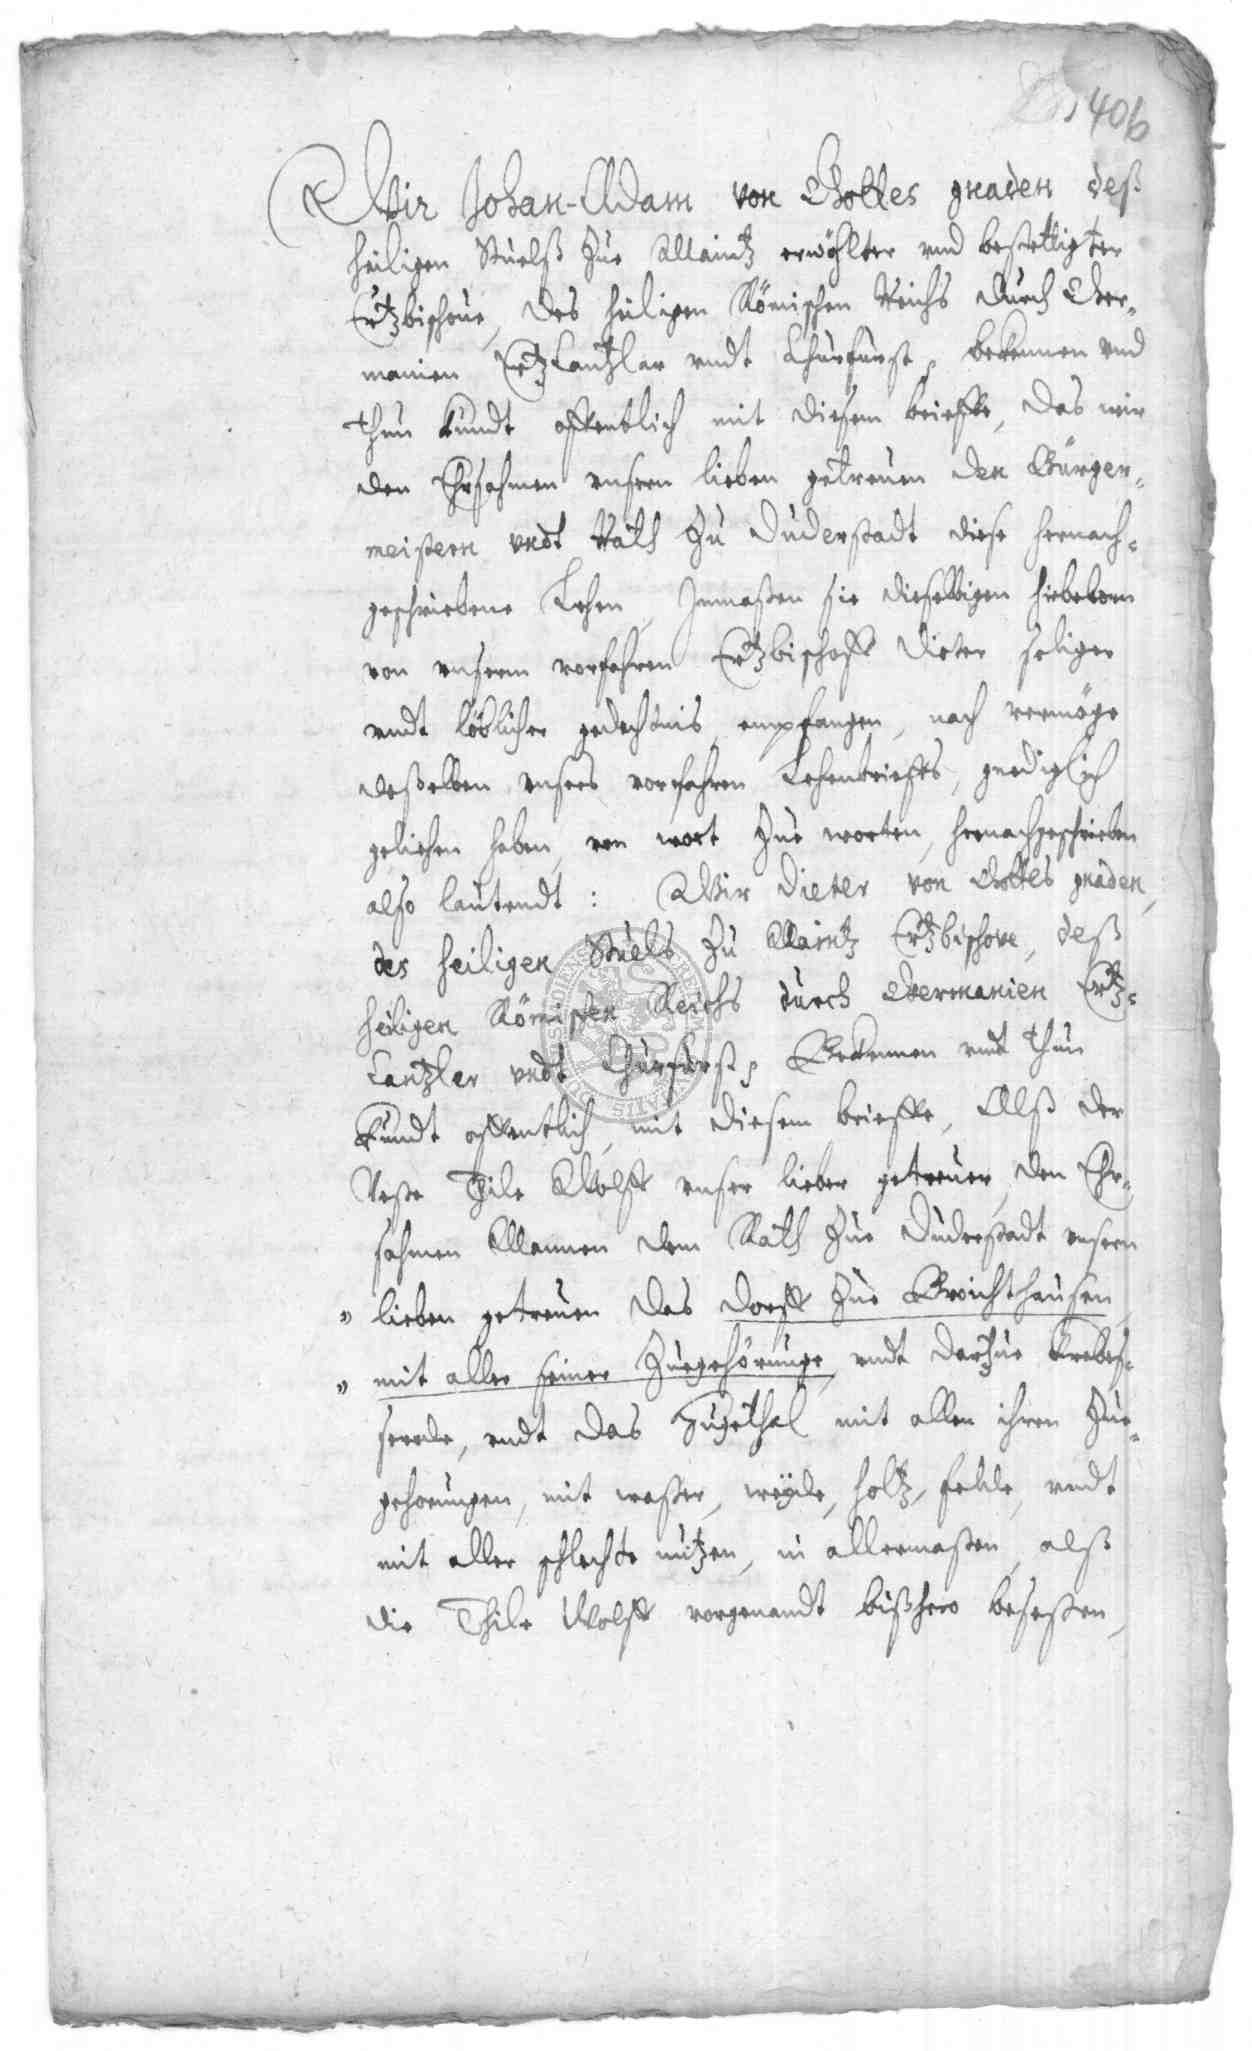 406
Wir Johan-Adam von Gottes gnaden deß
heiligen Stuelß Zue Maintz erwöhlter vnd bestettigter
Ertzbischoue, des heiligen Römischen Reichs durch Ger-
manien ErtzCantzlar vndt Churfurst, bekennen vnd
thun kundt offentlich mit diesem brieffe, das wir
den Ehrsahmen vnsern lieben getreuen den Bürger-
meistern vndt Rath Zu Duderstadt diese hernach-
geschriebene Lehen, Inmaßen sie dieselbigen hiebeborn
von vnserm vorfahren Ertzbischoff Dieter seliger
vndt löblicher gedechtnis empfangen, nach vermöge
deßelben vnsers vorfahren Lehenbrieffs, gnediglich
geliehen haben, von wort Zue worten, hernachgeschrieben
also lautendt: Wir Dieter von Gottes gnaden,
des heiligen Stuels Zu Maintz Ertzbischove, deß
heiligen Römischen Reichs durch Germanien Ertz-
Cantzler vndt Churfurst, Bekennen vndt thun
kundt offentlich, mit diesem brieffe, Alß der
Veste Thile Wolff vnser lieber getreuer, den Ehr-
sahmen Mannen dem Rath Zue Duderstadt vnsern
" lieben getreuen das dorff Zue Breichthausen
" mit aller seiner Zuegehörunge, vndt darzue
vndt das mit allen ihren Zue-
gehorungen, mit waßer, weyde, holtz, felde, vndt
mit aller schlechte nutzen, in allermaßen, alß
die Thile Wolff vorgenandt bißhero beseßen,